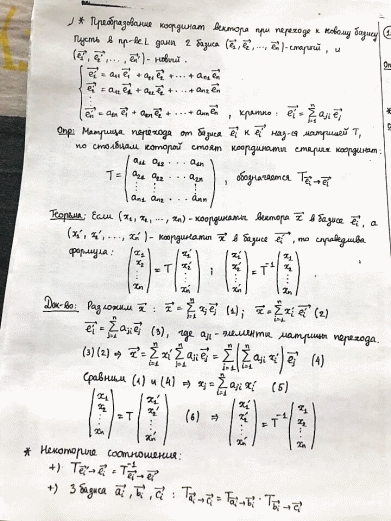 ) * Преобразование координат вектора при переходе к новому базису
Пусть в пр-ве L дано 2 базиса (e₁→, e₂→, ..., eₙ→)-старый, и
(e₁'→, e₂'→, ..., eₙ'→) - новый.
{ e₁'→ = a₁₁ e₁→ + a₂₁ e₂→ + .... + aₙ₁ eₙ→
e₂'→ = a₁₂ e₁→ + a₂₂ e₂→ + .... + aₙ₂ eₙ→
⋮
eₙ'→ = a₁ₙ e₁→ + a₂ₙ e₂→ + .... + aₙₙ eₙ→ , кратко: eᵢ'→ = ∑ⱼ₌₁ⁿ aⱼᵢ eⱼ→
Опр: Матрица перехода от базиса eᵢ→ к eᵢ'→ наз-ся матрицей T,
по столбцам которой стоят координаты старых координат:
T = ( a₁₁ a₁₂ ... a₁ₙ
a₂₁ a₂₂ ... a₂ₙ
⋮ ⋮ ⋮
aₙ₁ aₙ₂ ... aₙₙ ) , обозначается T eᵢ→ → eᵢ'→
Теорема: Если (x₁, x₂, ..., xₙ) - координаты вектора x→ в базисе eᵢ→, а
(x₁', x₂', ..., xₙ') - координаты x→ в базисе eᵢ'→, то справедлива
формула: (x₁ x₂ ⋮ xₙ) = T (x₁' x₂' ⋮ xₙ') ; (x₁' x₂' ⋮ xₙ') = T⁻¹ (x₁ x₂ ⋮ xₙ)
Док-во: Разложим x→ : x→ = ∑ⱼ₌₁ⁿ xⱼ eⱼ→ (1); x→ = ∑ᵢ₌₁ⁿ xᵢ' eᵢ'→ (2)
eᵢ'→ = ∑ⱼ₌₁ⁿ aⱼᵢ eⱼ→ (3), где aⱼᵢ - элементы матрицы перехода.
(3)(2) ⇒ x→ = ∑ᵢ₌₁ⁿ xᵢ' ∑ⱼ₌₁ⁿ aⱼᵢ eⱼ→ = ∑ⱼ₌₁ⁿ (∑ᵢ₌₁ⁿ aⱼᵢ xᵢ') eⱼ→ (4)
Сравним (1) и (4) ⇒ xⱼ = ∑ᵢ₌₁ⁿ aⱼᵢ xᵢ' (5)
(x₁ x₂ ⋮ xₙ) = T (x₁' x₂' ⋮ xₙ') (6) ⇒ (x₁' x₂' ⋮ xₙ') = T⁻¹ (x₁ x₂ ⋮ xₙ)
* Некоторые соотношения:
+) T eᵢ→ → eᵢ'→ = T⁻¹ eᵢ'→ → eᵢ→
+) 3 базиса aᵢ→, bᵢ→, cᵢ→ : T aᵢ→ → cᵢ→ = T aᵢ→ → bᵢ→ · T bᵢ→ → cᵢ→